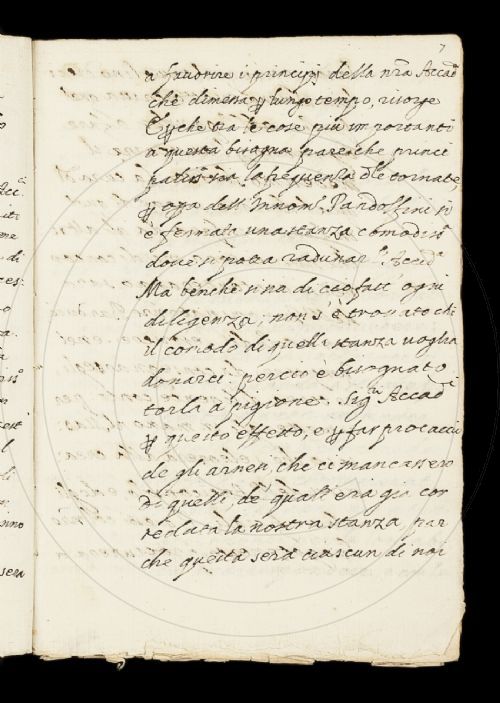 7
a favorire i principj della nr̃a Accad.
che dimessa p lungo tempo, risorge
E pche tra le cose piu importanti
a questa bisogna pare che princi
palis. sia la frequenza dlle tornate,
p opa dell' Innom. Pandolfini si
è fermata una stanza comodis.
dove si potrà radunar l'Accad.
Ma benchè si sia di ciò fatt ogni
diligenza; non s'è trovato chi
il comodo di quella stanza voglia
donarci: perciò è bisognato
torla a pigione. Sig. Accad.
p questo effetto, e p far procaccio
de gli arnesi, che ci mancassero
di quelli, de' quali era già cor
redata la nostra stanza, par
che questa sera ciascun di noi